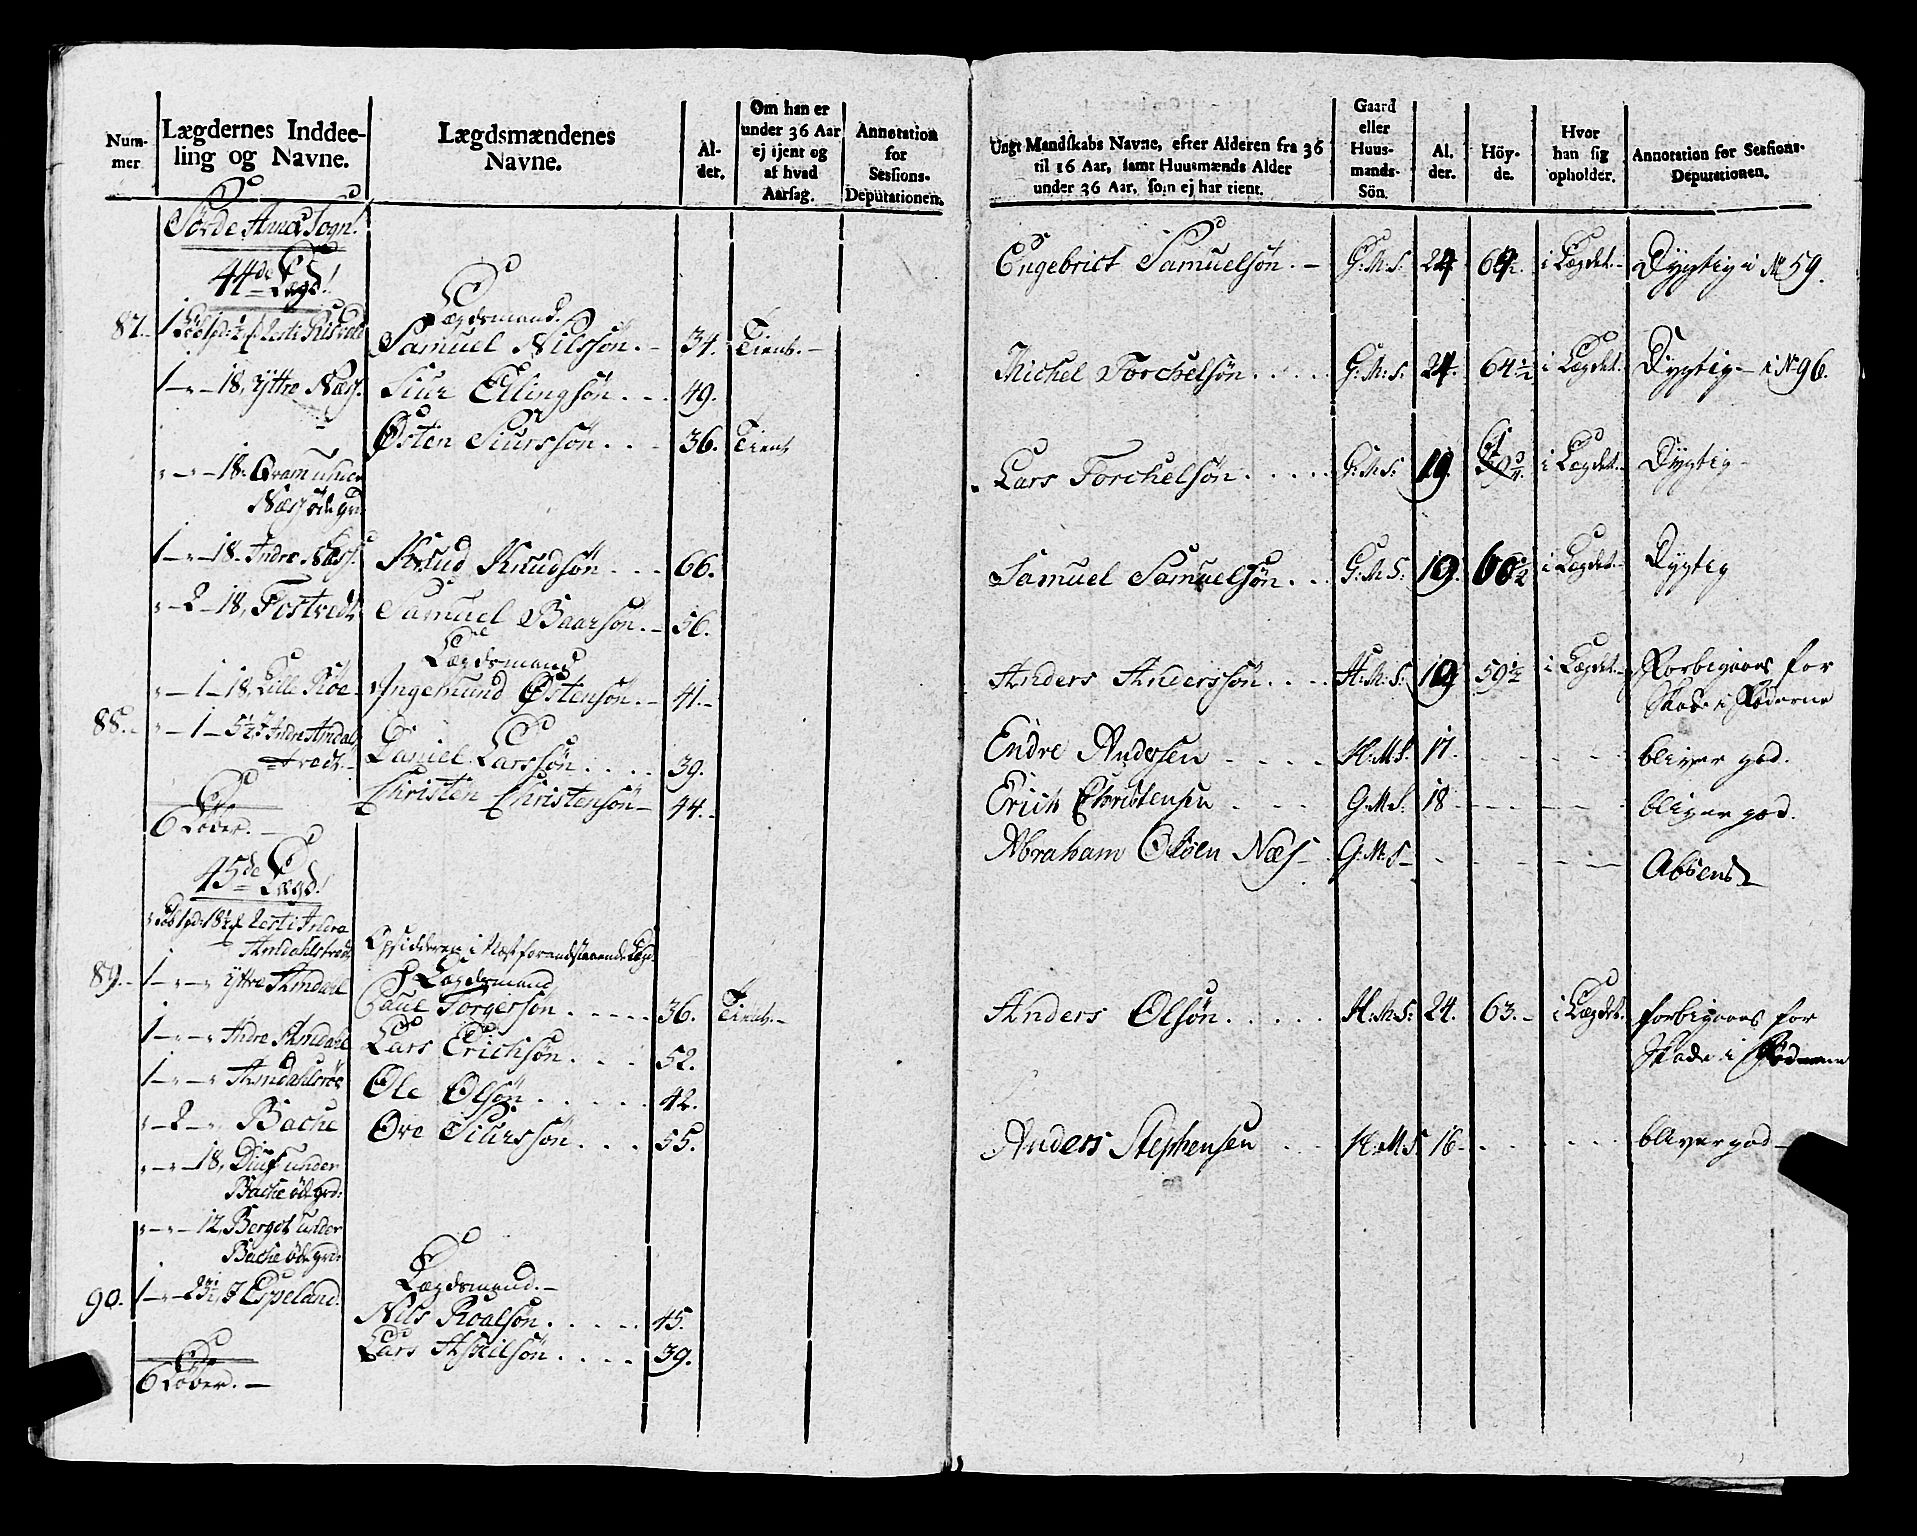 Num-
mer
Lægdernes Inddee-
ling og Navne.
Lægdsmændenes
Navne.
Al-
der.
Om han er
under 36 Aar
ej tjent og
af hvad
Aarsag.
Annotation
for
Sessions-
Deputationen.
44de Lægd!
Lægdsmand.
87.
Samuel Nilssön. 34. Tient.
1 - " - 18. Yttre Næss. Siur Ellingsön. 49.
Østen Siurssön. 36. Tient
" - " - 18. under
Næss öde grd.
1 - " - 18. Indre Næss. Knud Knudsön 66.
" - 2 - 18. Tostvedt Samuel Baarsön. 56.
Lægdsmand
" - 1 - 18. Lille Röe Ingemund Østensön. 41.
88. Daniel Larssön. 39.
Christen Christensön 44.
6 Löber.
45de Lægd!
Lægdsmand
89. 1 - " - " Yttre Amdahl Paul Torgersön 36. Tient.
1 - " - " Indre Amdahl Lars Erichsön. 52.
1 - " - " Amdahlsröe Ole Olsön 42.
" - 2 - " Bache Ove Siurssön 55.
" - " - 18. under
Bache öde grd:
" - " - 12. under
Bache öde grd:
Lægdsmand.
90. Espeland. Nils Roalsön. 45.
Lars Askilsön 39.
6 Löber.
Ungt Mandskabs Navne, efter Alderen fra 36
til 16 Aar, samt Huusmænds Alder
under 36 Aar, som ej har tient.
Gaard
eller
Huus-
mands-
Sön.
Al.
der.
Höy-
de.
Hvor
han sig
opholder.
Annotation for Sessions-
Deputationen.
Engebrict Samuelsön. G:M:S: 24 i Lægdet. Dygtig i No 59.
Michel Torchelsön G:M:S: 24. 64½ i Lægdet. Dygtig - i No 96.
Lars Torchelsön G:M:S: 19. i Lægdet. Dygtig
Samuel Samuelsön. G:M:S: 19. 60½ i Lægdet. Dygtig
Anders Anderssön. H:M:S: 19 59½ i Lægdet. Forbigaaes for
Skade i
Endre Andersen H:M:S. 17. bliver god.
Erich Christensen G:M:S. 18 bliver god.
Abraham Næss G:M:S Absent
Anders Olsön. H:M:S: 24. 63. i Lægdet. forbigaaes for
Skade i
Anders Stephensen H:M:S. 16 bliver god